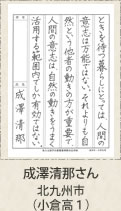 ときを待つ暮らしにとっては、人間の
意志など万能ではない。それよりも自
然という他者の動きの方が重要で
人間の意志は、自然のその動きを
活用する範囲内でしか有効ではない。
成澤清那
成澤清那さん
北九州市
(小倉高1)